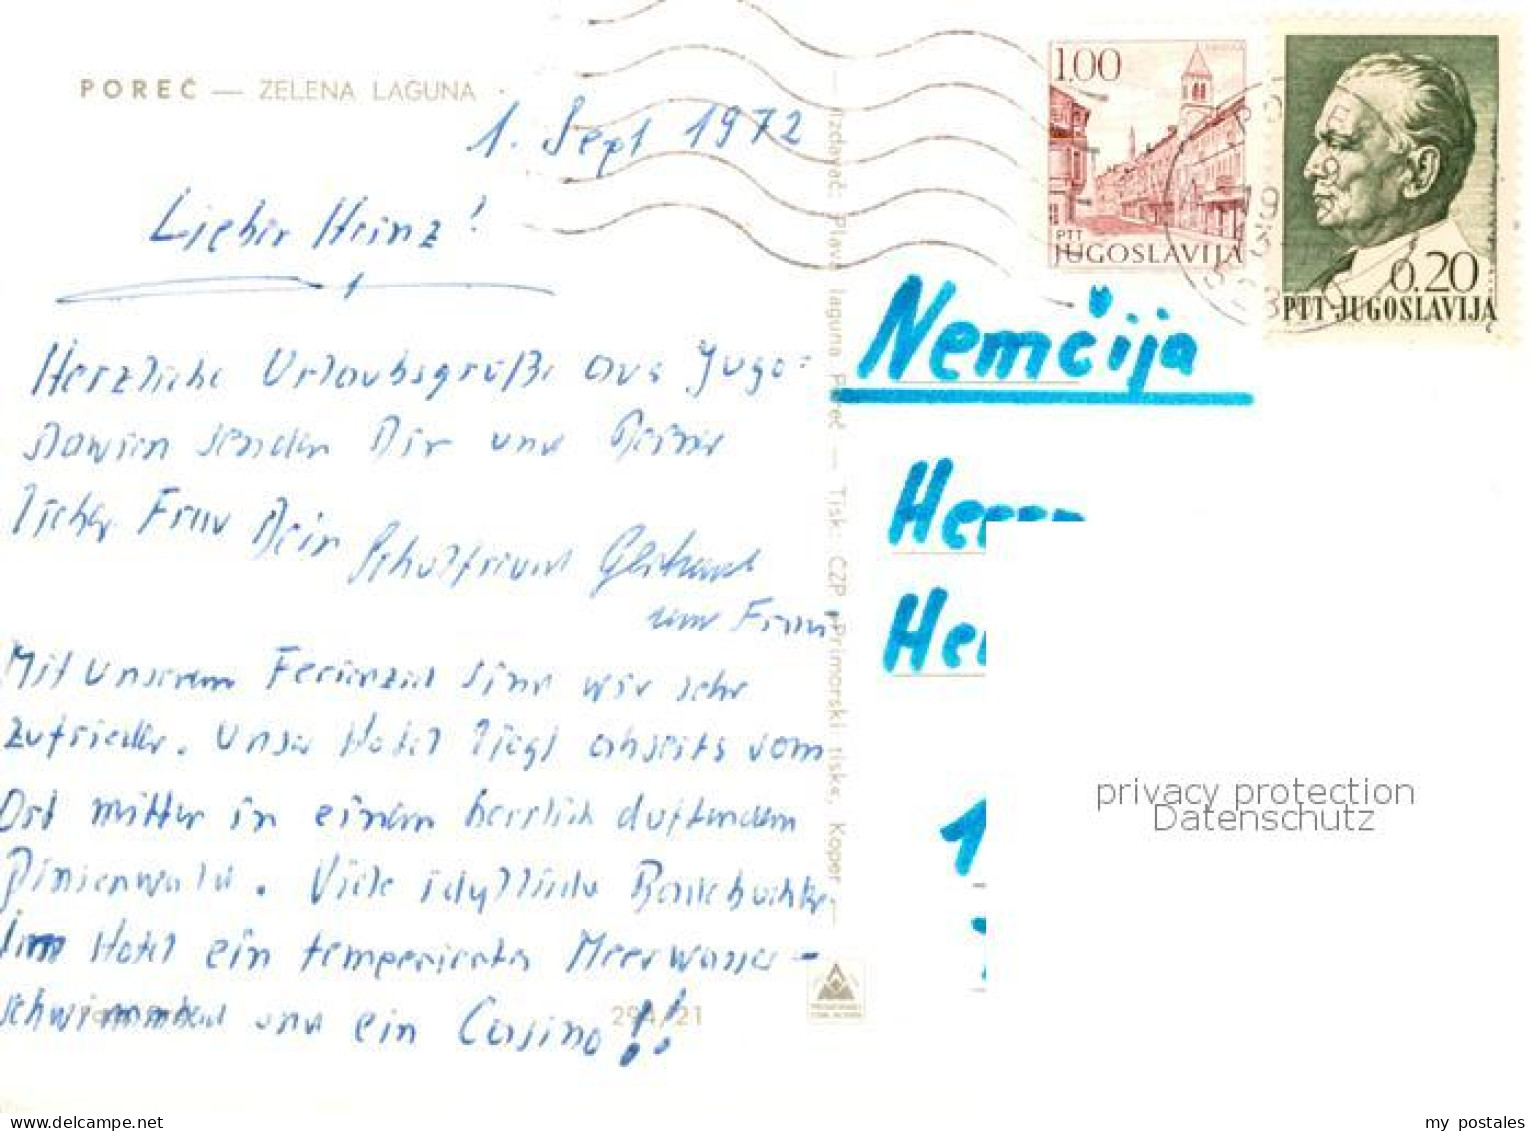 POREČ — ZELENA LAGUNA
1. Sept 1972
Lieber Heinz!
Herzliche Urlaubsgrüße aus Jugo=
slawien senden Dir und Deiner
lieben Frau Dein Schulfreund Gerhard
und Frau
Mit unserem Ferienziel sind wir sehr
zufrieden. Unser Hotel liegt abseits vom
Ort mitten in einem herrlich duftendem
Pinienwald. Viele idyllische Badebuchten
Im Hotel ein temperiertes Meerwasser-
schwimmbad und ein Casino!!
294/21
Izdavač: Plava laguna Poreč — Tisk: ČZP »Primorski tisk«, Koper —
1.00
PTT
JUGOSLAVIJA
0.20
PTT-JUGOSLAVIJA
Nemčija
Herrn
He
1
privacy protection
Datenschutz
my postales
www.delcampe.net